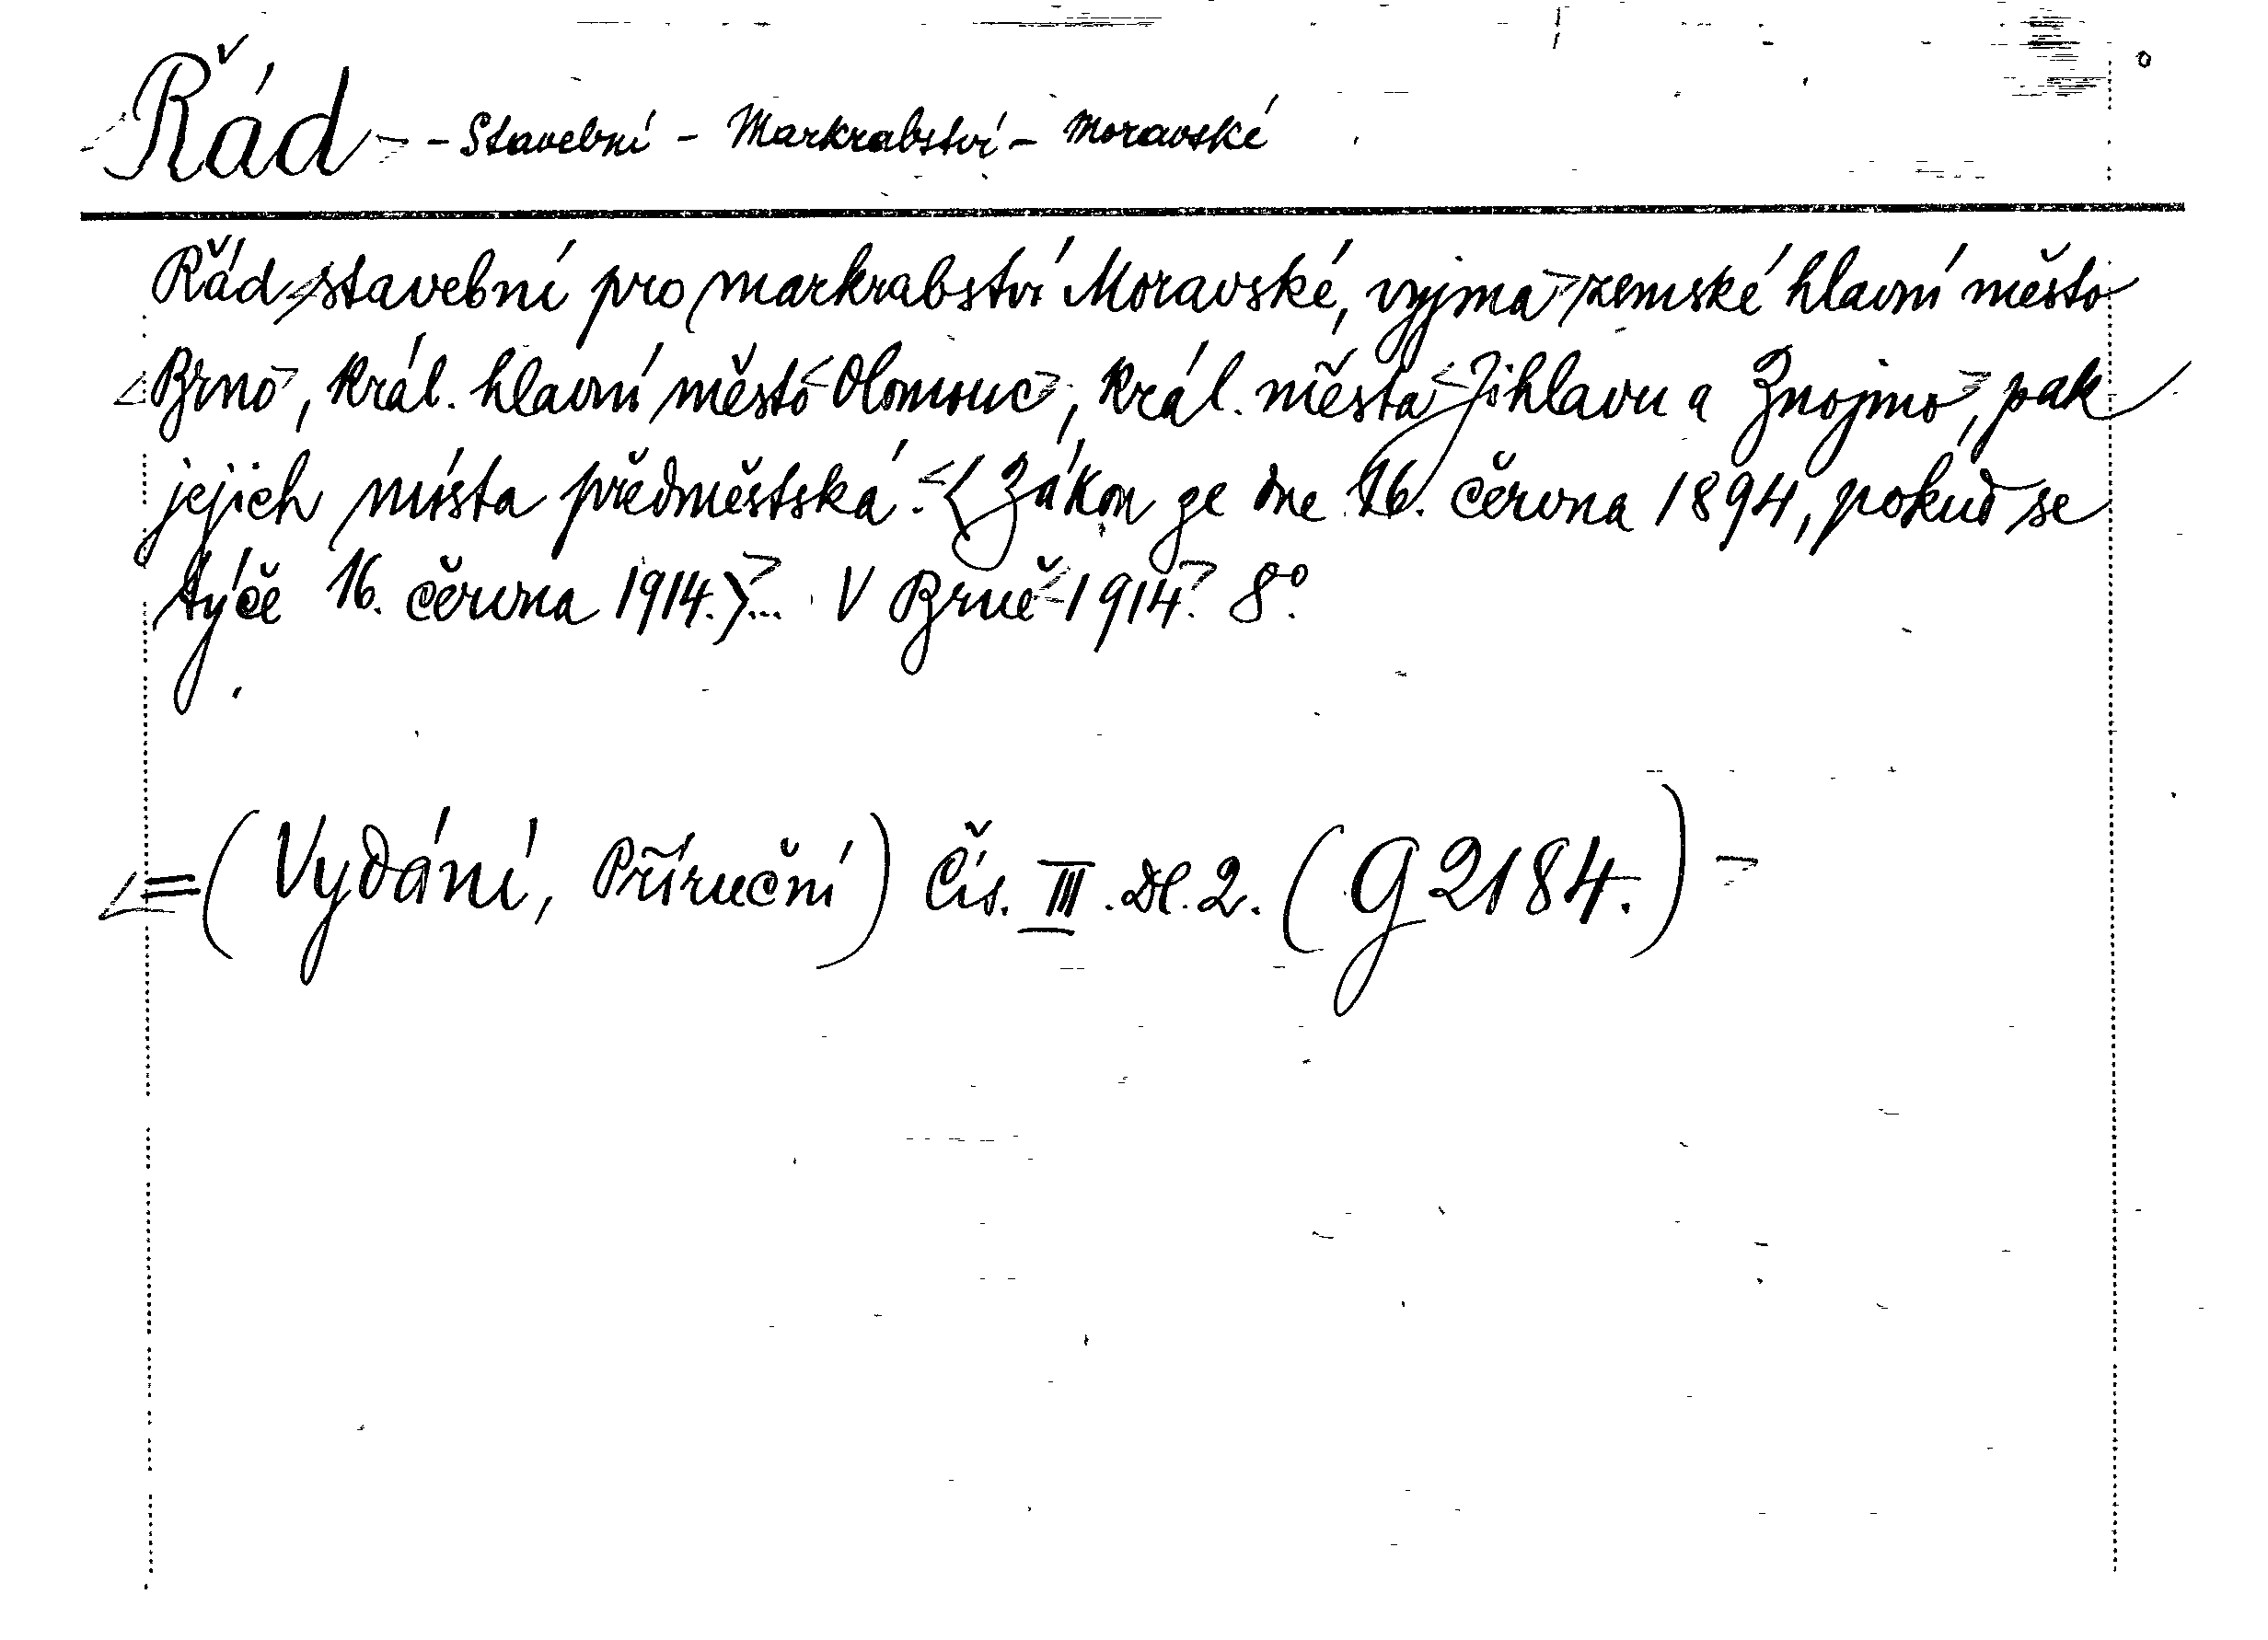 Řád - Stavební - Markrabství - Moravské
Řád stavební pro markrabství Moravské, vyjma zemské hlavní město
Brno, král. hlavní město Olomouc, král. města Jihlavu a Znojmo, pak
jejich místa předměstská. (Zákon ze dne 16. června 1894, pokud se
týče 16. června 1914.)... V Brně 1914. 8°.
=(Vydání, Příruční) Čís. III. Dl. 2. (G 2184.)